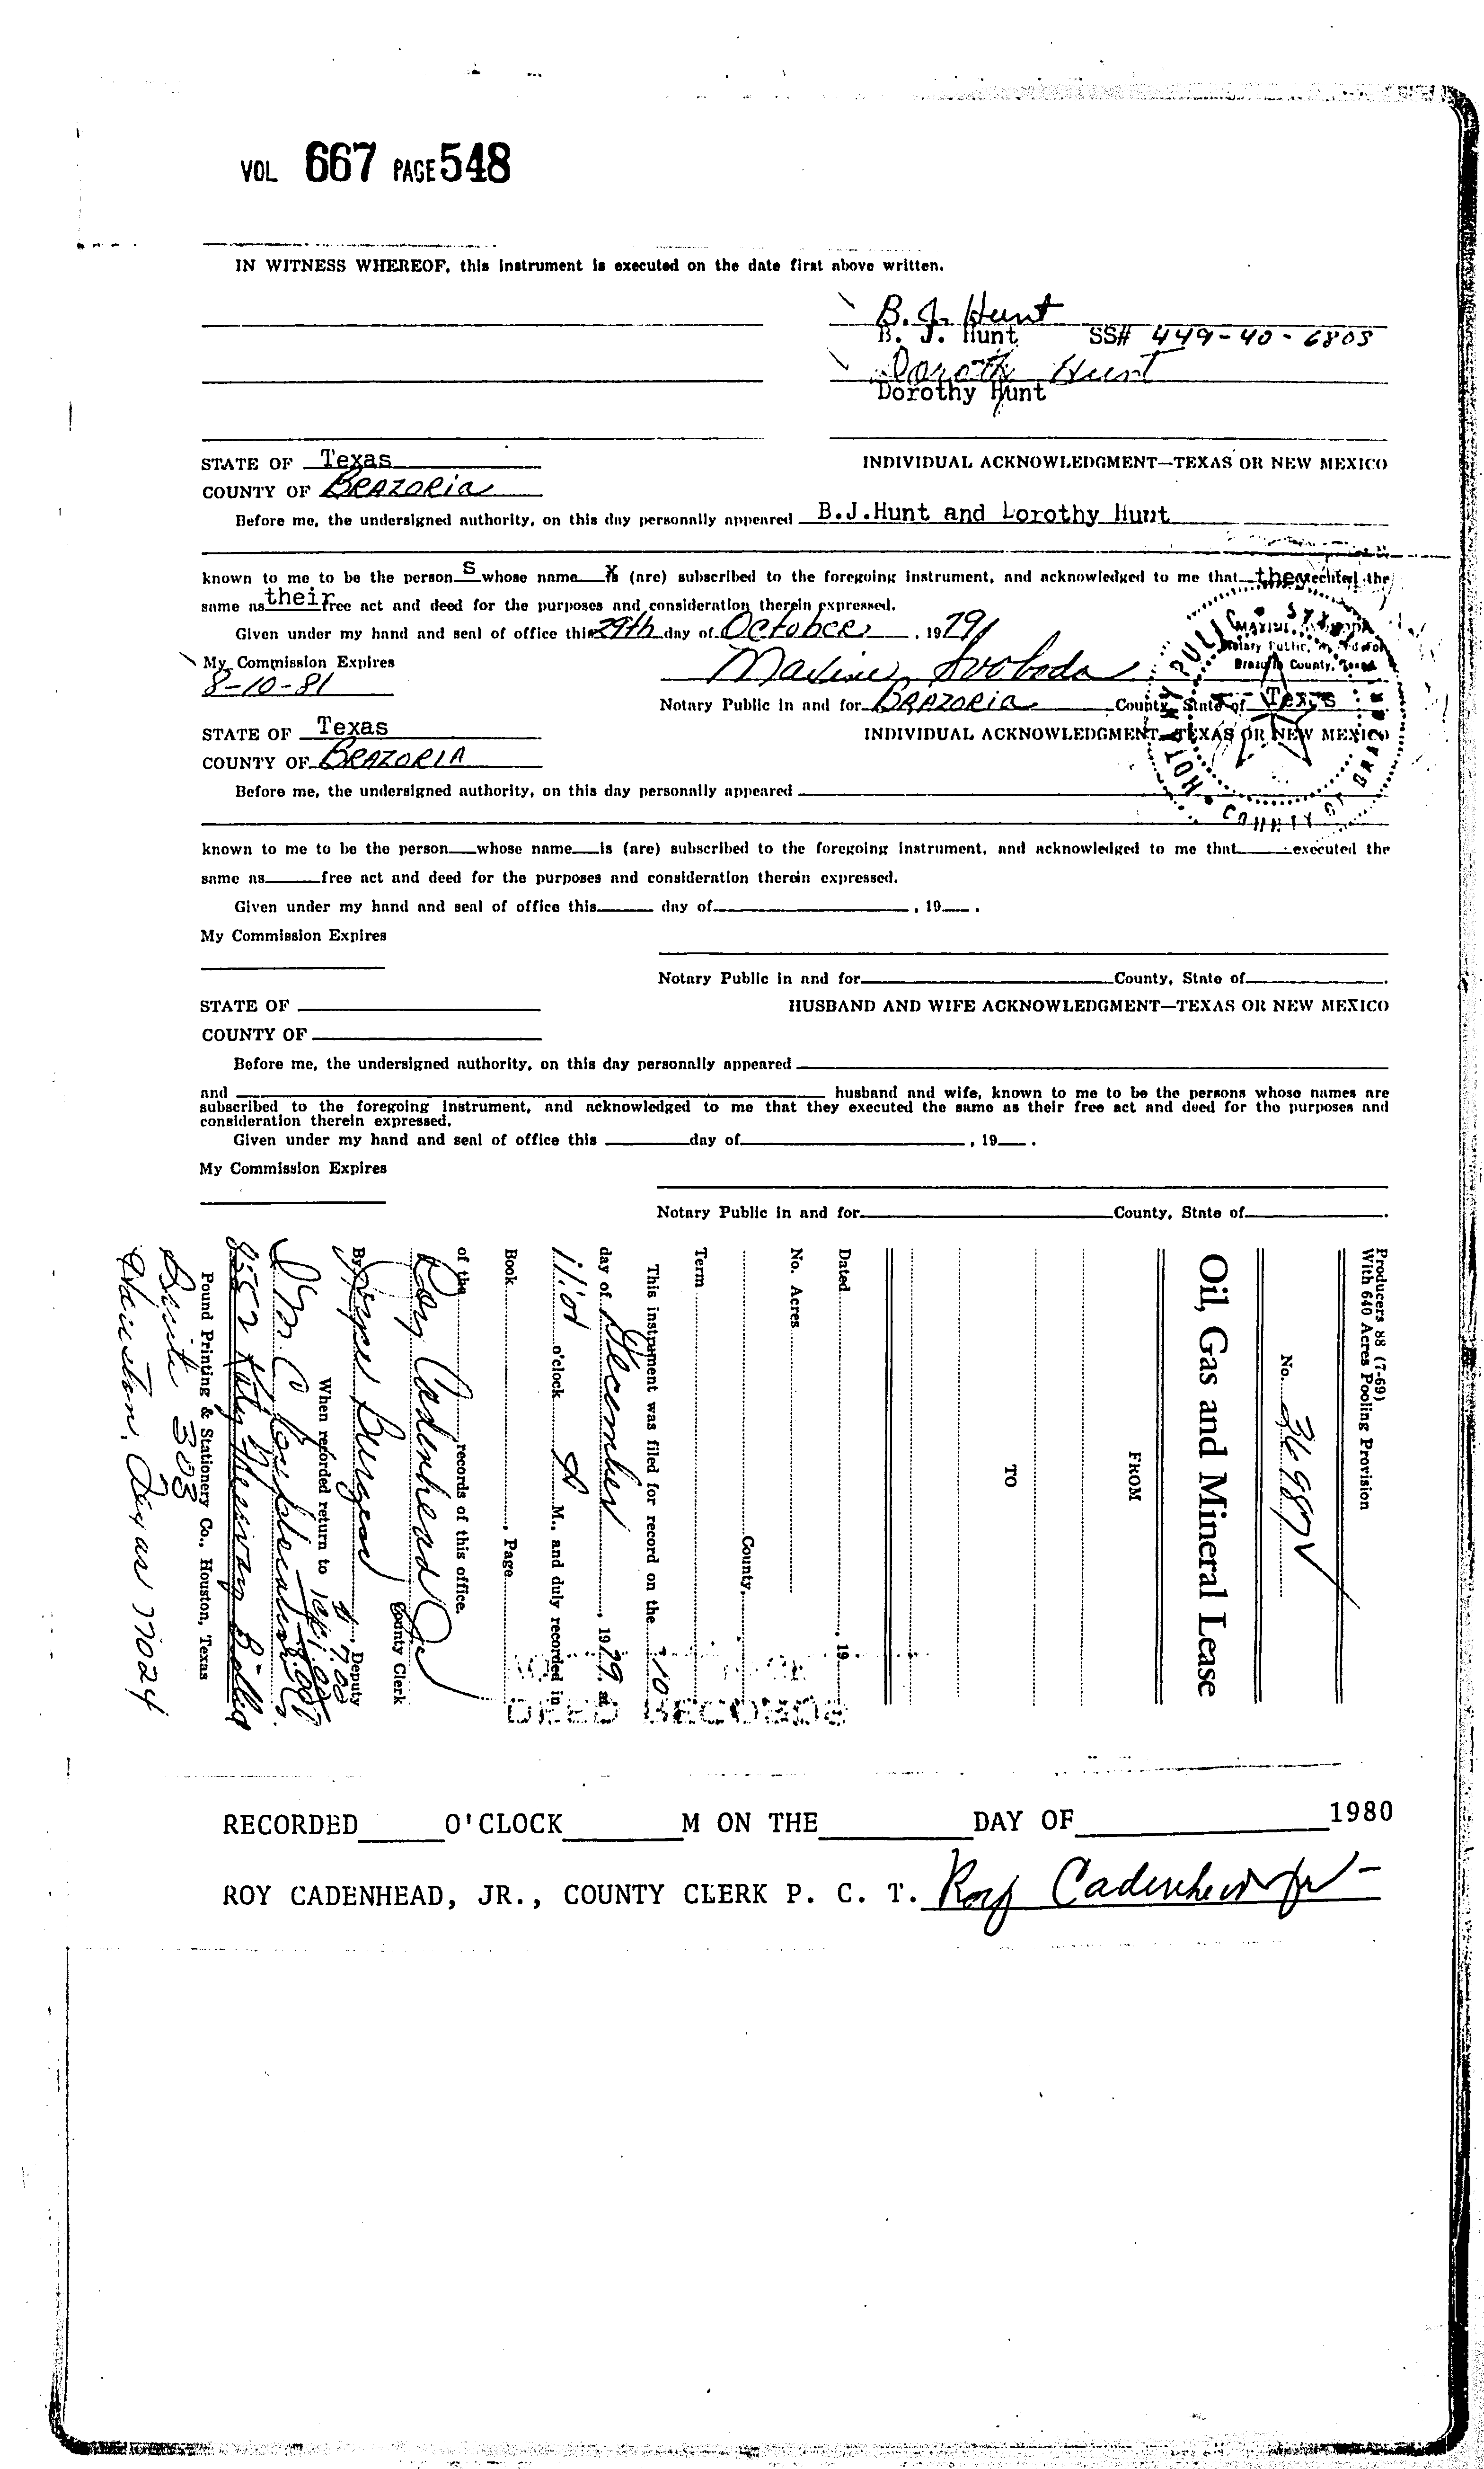 VOL 667 PAGE 548
IN WITNESS WHEREOF, this instrument is executed on the date first above written.
B. J. Hunt
B. J. Hunt SS# 449-40-6805
Dorothy Hunt
Dorothy Hunt
STATE OF Texas INDIVIDUAL ACKNOWLEDGMENT—TEXAS OR NEW MEXICO
COUNTY OF BRAZORIA
Before me, the undersigned authority, on this day personally appeared B.J.Hunt and Dorothy Hunt
known to me to be the person s whose name is (are) subscribed to the foregoing instrument, and acknowledged to me that they executed the
same as their free act and deed for the purposes and consideration therein expressed.
Given under my hand and seal of office this 29th day of October, 1979
My Commission Expires
8-10-81
Maxine Svoboda
Notary Public in and for BRAZORIA County, State of Texas
STATE OF Texas INDIVIDUAL ACKNOWLEDGMENT—TEXAS OR NEW MEXICO
COUNTY OF BRAZORIA
Before me, the undersigned authority, on this day personally appeared
known to me to be the person whose name is (are) subscribed to the foregoing instrument, and acknowledged to me that executed the
same as free act and deed for the purposes and consideration therein expressed.
Given under my hand and seal of office this day of , 19 .
My Commission Expires
Notary Public in and for County, State of .
STATE OF HUSBAND AND WIFE ACKNOWLEDGMENT—TEXAS OR NEW MEXICO
COUNTY OF
Before me, the undersigned authority, on this day personally appeared
and husband and wife, known to me to be the persons whose names are
subscribed to the foregoing instrument, and acknowledged to me that they executed the same as their free act and deed for the purposes and
consideration therein expressed.
Given under my hand and seal of office this day of , 19 .
My Commission Expires
Notary Public in and for County, State of .
Producers 88 (7-69)
With 640 Acres Pooling Provision
No. 36987
Oil, Gas and Mineral Lease
FROM
TO
Dated , 19
No. Acres
County,
Term
This instrument was filed for record on the 10
day of December, 1979, at
11:01 o'clock A M., and duly recorded in
Book , Page
of the records of this office.
Roy Cadenhead Jr
County Clerk
By Joyce Burgess, Deputy
When recorded return to
$ 7.00
8552 Katy Freeway
Pound Printing & Stationery Co., Houston, Texas
Suite 303
Houston, Texas 77024
DEED RECORDS
RECORDED O'CLOCK M ON THE DAY OF 1980
ROY CADENHEAD, JR., COUNTY CLERK P. C. T. Roy Cadenhead Jr